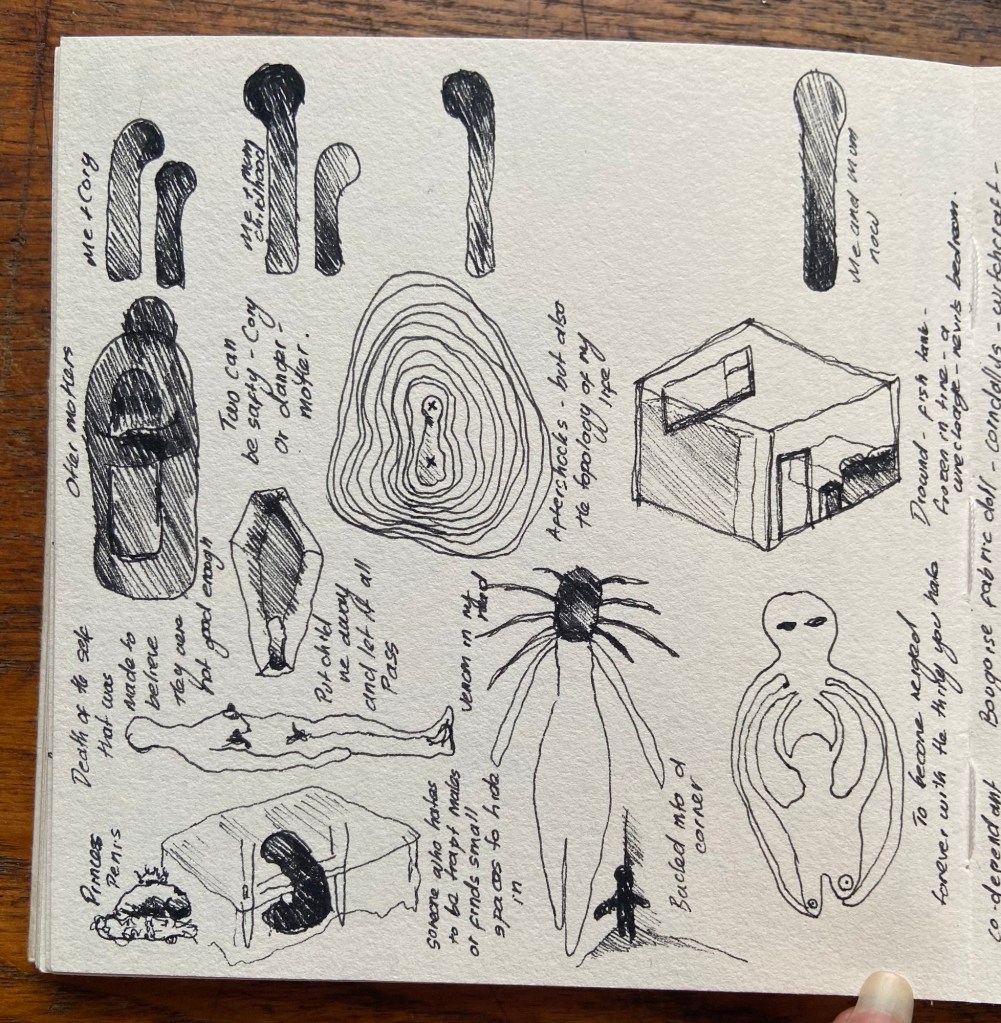 Princes
Penis
Death of the self
that was
made to
believe
they were
not good enough
Other mothers
me + Cory
Put child
me away
and let it all
Pass
Two can
be safty - Cory
or danger -
mother.
me + mum
childhood
someone who hates
to be trapt makes
or finds small
spaces to hide
in
venom in my
Head
Aftershocks - but also
the topology of my
life
Backed into a
corner
me and mum
now
To become merged
forever with the thing you hate
Drownd - fish tank -
frozen in time - a
wire cage - nevils bedroom.
co-dependant Bougoise fabric doll - corndolls - witchcraft -